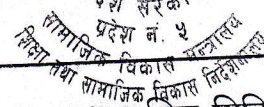 प्रदेश नं. ५
सामाजिक विकास मन्त्रालय
शिक्षा तथा सामाजिक विकास निर्देशनालय